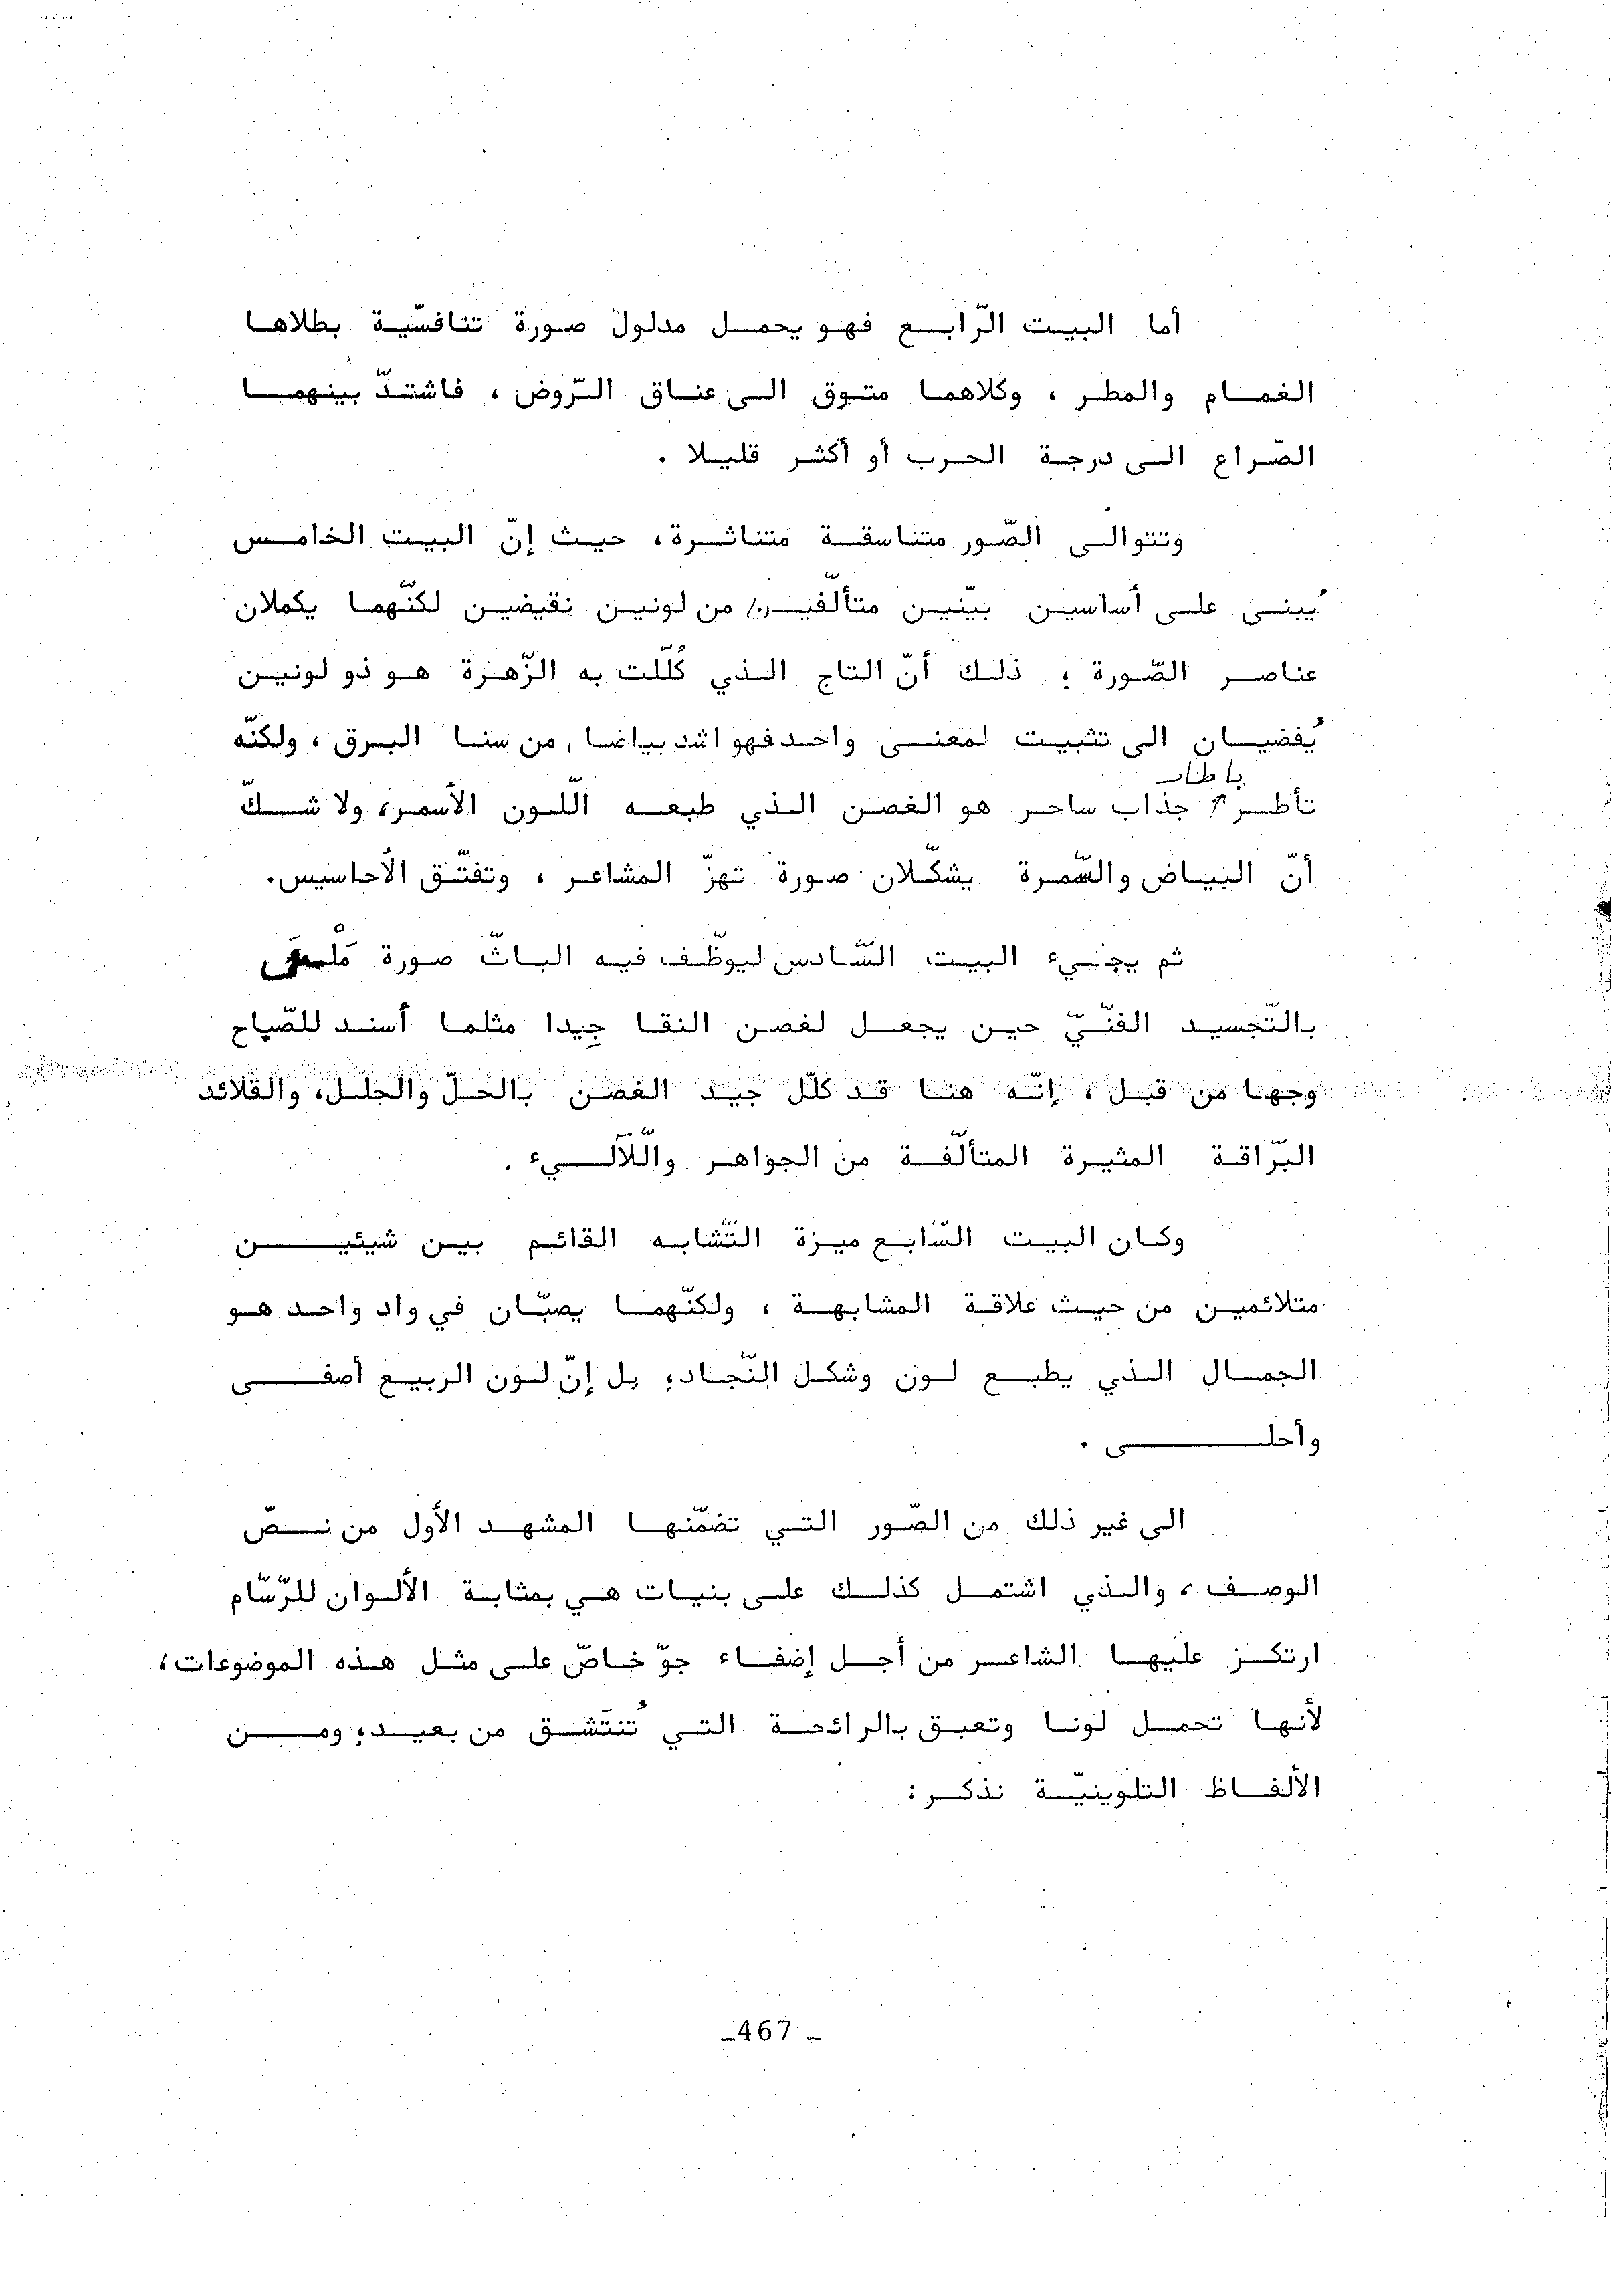 أما البيت الرّابع فهو يحمل مدلول صورة تنافسّية بطلاها
الغمام والمطر ، وكلاهما متوق الى عناق الرّوض ، فاشتدّ بينهما
الصّراع الى درجة الحرب أو أكثر قليلا .
وتتوالى الصّور متناسقة متناثرة، حيث إنّ البيت الخامس
يُبنى على أساسين بيّنين متألّفين من لونين نقيضين لكنّهما يكملان
عناصر الصّورة ؛ ذلك أنّ التاج الذي كُلّلت به الزّهرة هو ذو لونين
يُفضيان الى تثبيت لمعنى واحد فهو اشد بياضا، من سنا البرق ، ولكنّه
باطار
تأطر جذاب ساحر هو الغصن الذي طبعه اللّون الأسمر، ولا شكّ
أنّ البياض والسّمرة يشكّلان صورة تهزّ المشاعر ، وتفتّق الأحاسيس.
ثم يجيء البيت السّادس ليوظّف فيه الباثّ صورة
بالتّجسيد الفنّيّ حين يجعل لغصن النقا جِيدا مثلما أسند للصّباح
وجها من قبل ، إنّه هنا قد كلّل جيد الغصن بالحلّ والحلل، والقلائد
البرّاقة المثيرة المتألّفة من الجواهر واللّآليء .
وكان البيت السّابع ميزة التّشابه القائم بين شيئين
متلائمين من حيث علاقة المشابهة ، ولكنّهما يصبّان في واد واحد هو
الجمال الذي يطبع لون وشكل النّجاد؛ بل إنّ لون الربيع أصفى
وأحلى .
الى غير ذلك من الصّور التي تضمّنها المشهد الأول من نصّ
الوصف ، والذي اشتمل كذلك على بنيات هي بمثابة الألوان للرّسّام
ارتكز عليها الشاعر من أجل إضفاء جوّ خاصّ على مثل هذه الموضوعات،
لأنها تحمل لونا وتعبق بالرائحة التي تُنتَشق من بعيد؛ ومن
الألفاظ التلوينيّة نذكر :
_467 _